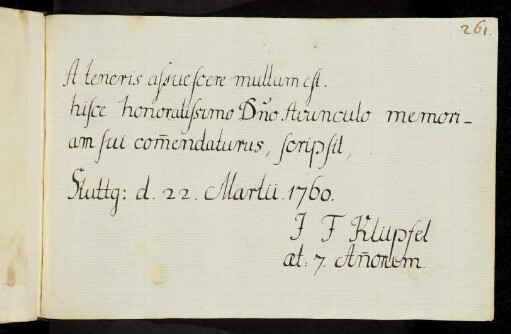 261.
A teneris assuescere multum est.
hisce honoratissimo Dn̄o Avunculo memori-
am sui com̄endaturus, scripsit,
Stuttg: d. 22. Martii. 1760.
J F Klüpfel
æt: 7. An̄orum.